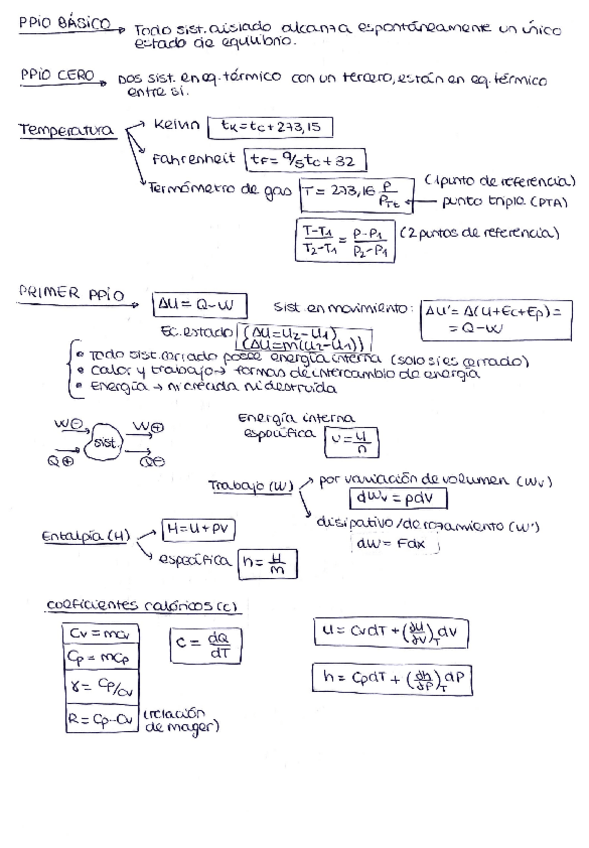 PPIO BÁSICO → Todo sist. aislado alcanza espontáneamente un único
estado de equilibrio.
PPIO CERO → Dos sist. en eq. térmico con un tercero, están en eq. térmico
entre sí.
Temperatura → Kelvin tK = tC + 273,15
→ Fahrenheit tF = 9/5 tC + 32
→ Termómetro de gas T = 273,16 P/PTt (1 punto de referencia)
← punto triple (PTA)
T-T1/T2-T1 = P-P1/P2-P1 (2 puntos de referencia)
PRIMER PPIO → ΔU = Q-W Sist. en movimiento: ΔU' = Δ(U+Ec+Ep) =
= Q-W
Ec. estado (ΔU = U2-U1)
(ΔU = m(u2-u1))
• Todo sist. cerrado posee energía interna (solo si es cerrado)
• Calor y trabajo → formas de intercambio de energía
• Energía → ni creada ni destruida
W⊖ → sist. → W⊕
Q⊕ → → Q⊖
Energía interna
específica u = U/n
Trabajo (W) → por variación de volumen (Wv)
dWv = pdV
→ disipativo / de rozamiento (W')
dW = Fdx
Entalpía (H) → H = U + PV
→ específica h = H/m
Coeficientes calóricos (c)
Cv = mcv
Cp = mcp
γ = Cp/Cv
R = Cp - Cv (relación
de mayer)
C = dQ/dT
u = CvdT + (∂U/∂V)T dV
h = CpdT + (∂h/∂P)T dP